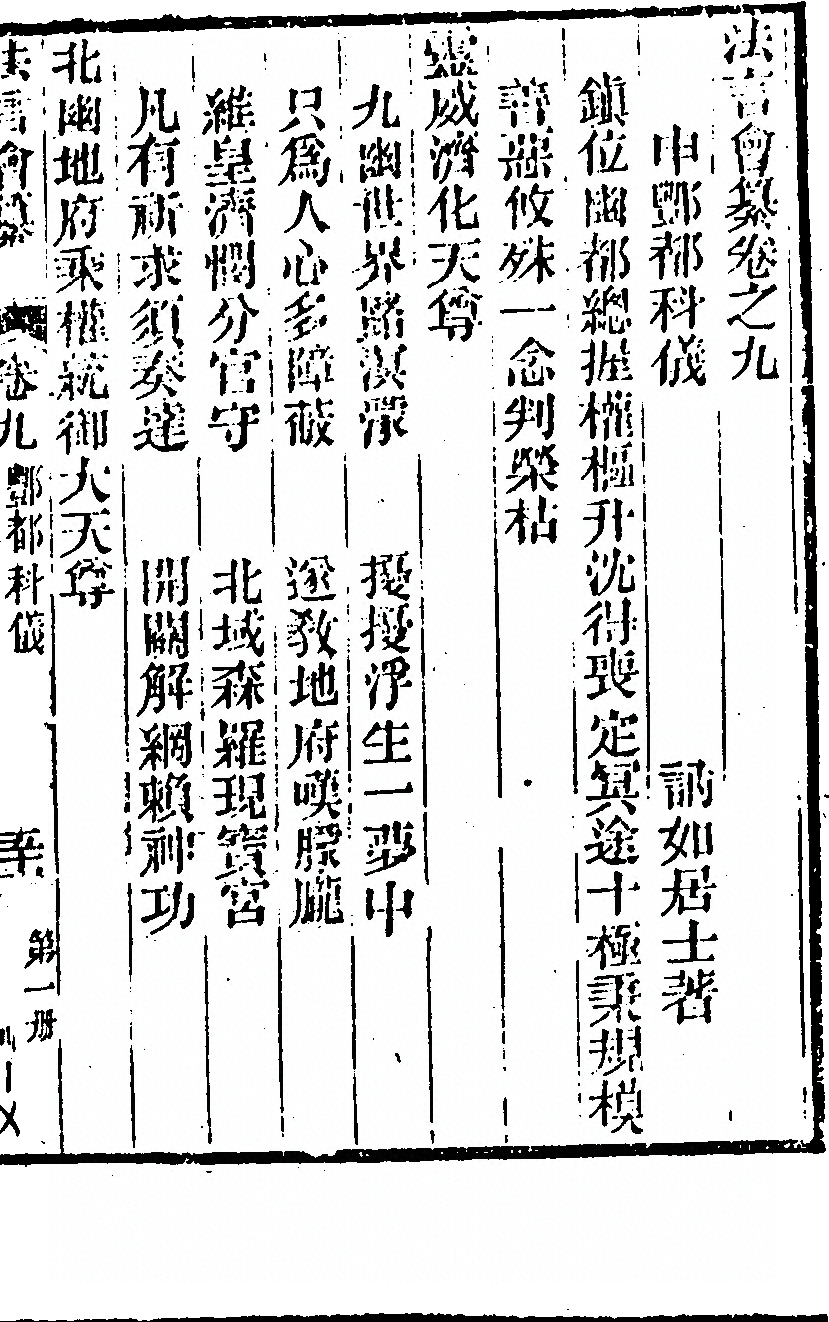 法言會纂卷之九
申酆都科儀　訥如居士著
鎭位幽都總握權樞升沈得喪定冥途十極秉規模
善惡攸殊一念判榮枯
靈威濟化天尊
九幽世界路溟濛　擾擾浮生一夢中
只爲人心多障蔽　遂敎地府嘆朦朧
維皇濟憫分官守　北域森羅現寶宮
凡有祈求須奏達　開關解網賴神功
北幽地府秉權統御大天尊
法言會纂　卷九　酆都科儀
第一册